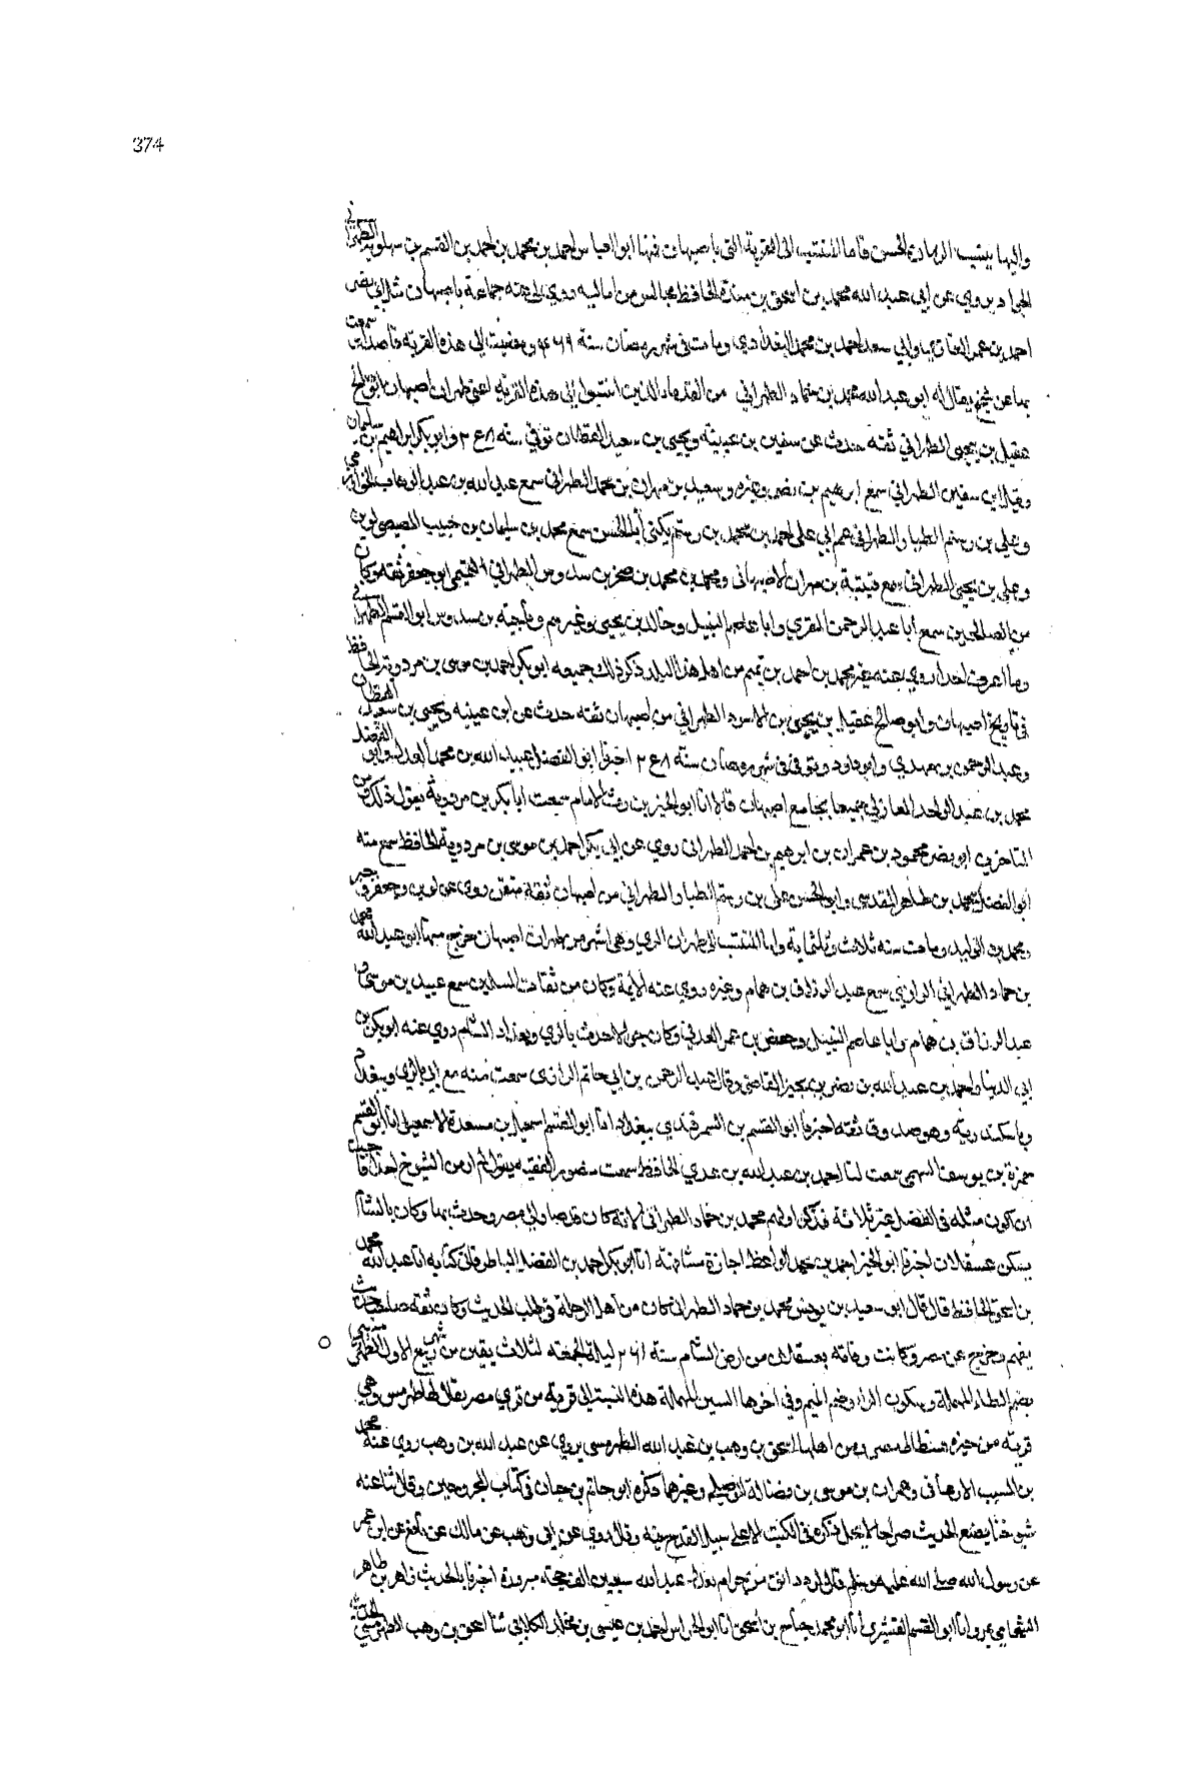 374
واليها ينتسب الرمادي الحسن فاما المنتسب الى القرية التي باصبهان فمنها ابو العباس احمد بن محمد بن احمد بن القسم بن سهلويه الطهراني
الجواد يروي عن ابي عبد الله محمد بن اسحق بن مندة الحافظ مجالس من اماليه روى لي عنه جماعة باصبهان مثل ابي نصر
احمد بن عمر الغازي وابي سعد احمد بن محمد البغدادي ومات في شهر رمضان سنة ومضيت الى هذه القرية قاصدا سمعت
بها عن شيخ يقال له ابو عبد الله محمد بن حماد الطهراني من القدماء الذين انتسبوا الى هذه القرية اعني طهران اصبهان ابو صالح
عقيل بن يحيى الطهراني ثقة حدث عن سفين بن عيينة ويحيى بن سعيد القطان توفي سنة وابو بكر ابراهيم بن سليمان
ويقال ابن سفين الطهراني سمع ابرهيم بن نصر وغيره وسعيد بن مهران بن محمد الطهراني سمع عبد الله بن عبد الوهاب الخوارزمي
وعلي بن رستم الطيار الطهراني عم ابي علي احمد بن محمد بن رستم يكنى ابا الحسن سمع محمد بن سليمان بن حبيب المصيصي لوين
وعلي بن يحيى الطهراني سمع قتيبة بن مهران الاصبهاني ومحمد بن محمد بن صخر بن سدوس الطهراني التميمي ابو جعفر ثقة وكان
من الصالحين سمع ابا عبد الرحمن المقري وابا عاصم النبيل وخالد بن يحيى وغيرهم وناجية بن سدوس ابو القسم الطهراني
وما اعرف احدا روى عنه غير محمد بن احمد بن تميم من اهل هذا البلد ذكر ذلك جميعه ابو بكر احمد بن موسى بن مردويه الحافظ
في تاريخ اصبهان وابو صالح عقيل بن يحيى بن الاسود الطهراني من اصبهان ثقة حدث عن ابن عيينه ويحيى بن سعيد القطان
وعبد الرحمن بن مهدي وابو داود وتوفي في شهر رمضان سنة اخبرنا ابو الفضل عبيد الله بن محمد وابو الفضل
محمد بن عبد الواحد المغازلي جميعا بجامع اصبهان قالا انا ابو الخير بن الامام سمعت ابا بكر بن مردوية يقول ذلك ومن
المتاخرين ابو نصر محمود بن عمر بن ابرهيم بن احمد الطهراني روى عن ابي بكر احمد بن موسى بن مردوية الحافظ سمع منه
ابو الفضل محمد بن طاهر المقدسي وابو الحسن علي بن رستم الطيار الطهراني من اصبهان ثقة متقن روى عن لوين وجعفر بن
ومحمد بن الوليد ومات سنة ثلاث وثلثماية واما المنتسب الى طهران الري وهي اشهر من طهران اصبهان خرج منها ابو عبد الله محمد
بن حماد الطهراني الرازي سمع عبد الرزاق بن همام وغيره روى عنه الائمة وكان من ثقات المسلمين سمع عبيد بن موسى
عبد الرزاق بن همام وابا عاصم النبيل وحفص بن عمر العدني وكان جوالا حدث بالري وبغداد الشام روى عنه ابو بكر بن
ابي الدنيا واحمد بن عبد الله بن نصر بن بجير القاضي وقال عبد الرحمن بن ابي حاتم الرازي سمعت منه مع ابي بالري وببغداد
وباسكندرية وهو صدوق ثقة اخبرنا ابو القسم بن السمرقندي ببغداد انا ابو القسم اسمعيل بن مسعدة الاسمعيلي انا ابو القسم
حمزة بن يوسف السهمي سمعت لنا احمد بن عبد الله بن عدي الحافظ سمعت منصور الفقيه يقول لم ار من الشيوخ احدا
ان اكون مثله في الفضل غير ثلاثة فذكر اولهم محمد بن حماد الطهراني لانه كان قد صار الى مصر وحدث بها وكان بالشام
يسكن عسقلان اخبرنا ابو الخير احمد بن محمد الواعظ اجازة مشافهة انا ابو بكر احمد بن الفضل الباطرقاني كتابه انا عبد الله محمد
بن اسحق الحافظ قال قال ابو سعيد بن يونس محمد بن حماد الطهراني كان من اهل الرحلة في طلب الحديث وكان ثقة صاحب حديث
يفهم وخرج عن مصر وكانت وفاته بعسقلان من ارض الشام سنة ليلة الجمعة لثلاث بقين من شهر ربيع الاول الطرمسي
بضم الطاء المهملة وسكون الراء وضم الميم وفي اخرها السين المهملة هذه النسبة الى قرية من قري مصر يقال لها طرمس وهي
قرية من حيزه فسطاط مصر ومن اهلها اسحق بن وهب بن عبد الله الطرمسي يروي عن عبد الله بن وهب روى عنه محمد
بن المسيب الارغياني وعمران بن موسى بن فضالة الموصلي وغيرهما ذكره ابو حاتم بن حبان في كتاب المجروحين وقال ثنا عنه
شيوخنا يضع الحديث صراحا لا يحل ذكره في الكتب الا على سبيل القدح فيه وقال روى عن ابن وهب عن مالك عن نافع عن ابن عمر
عن رسول الله صلى الله عليه وسلم قال لرد دانق من حرام يعدل عند الله سبعين الف حجة مبرورة اخبرنا بالحديث زاهر بن طاهر
الشحامي بمرو انا ابو القسم القشيري انا ابو محمد جناح بن اسحق انا ابو الحراس احمد بن عيسى بن مخلد الكلابي ثنا اسحق بن وهب الطرمسي